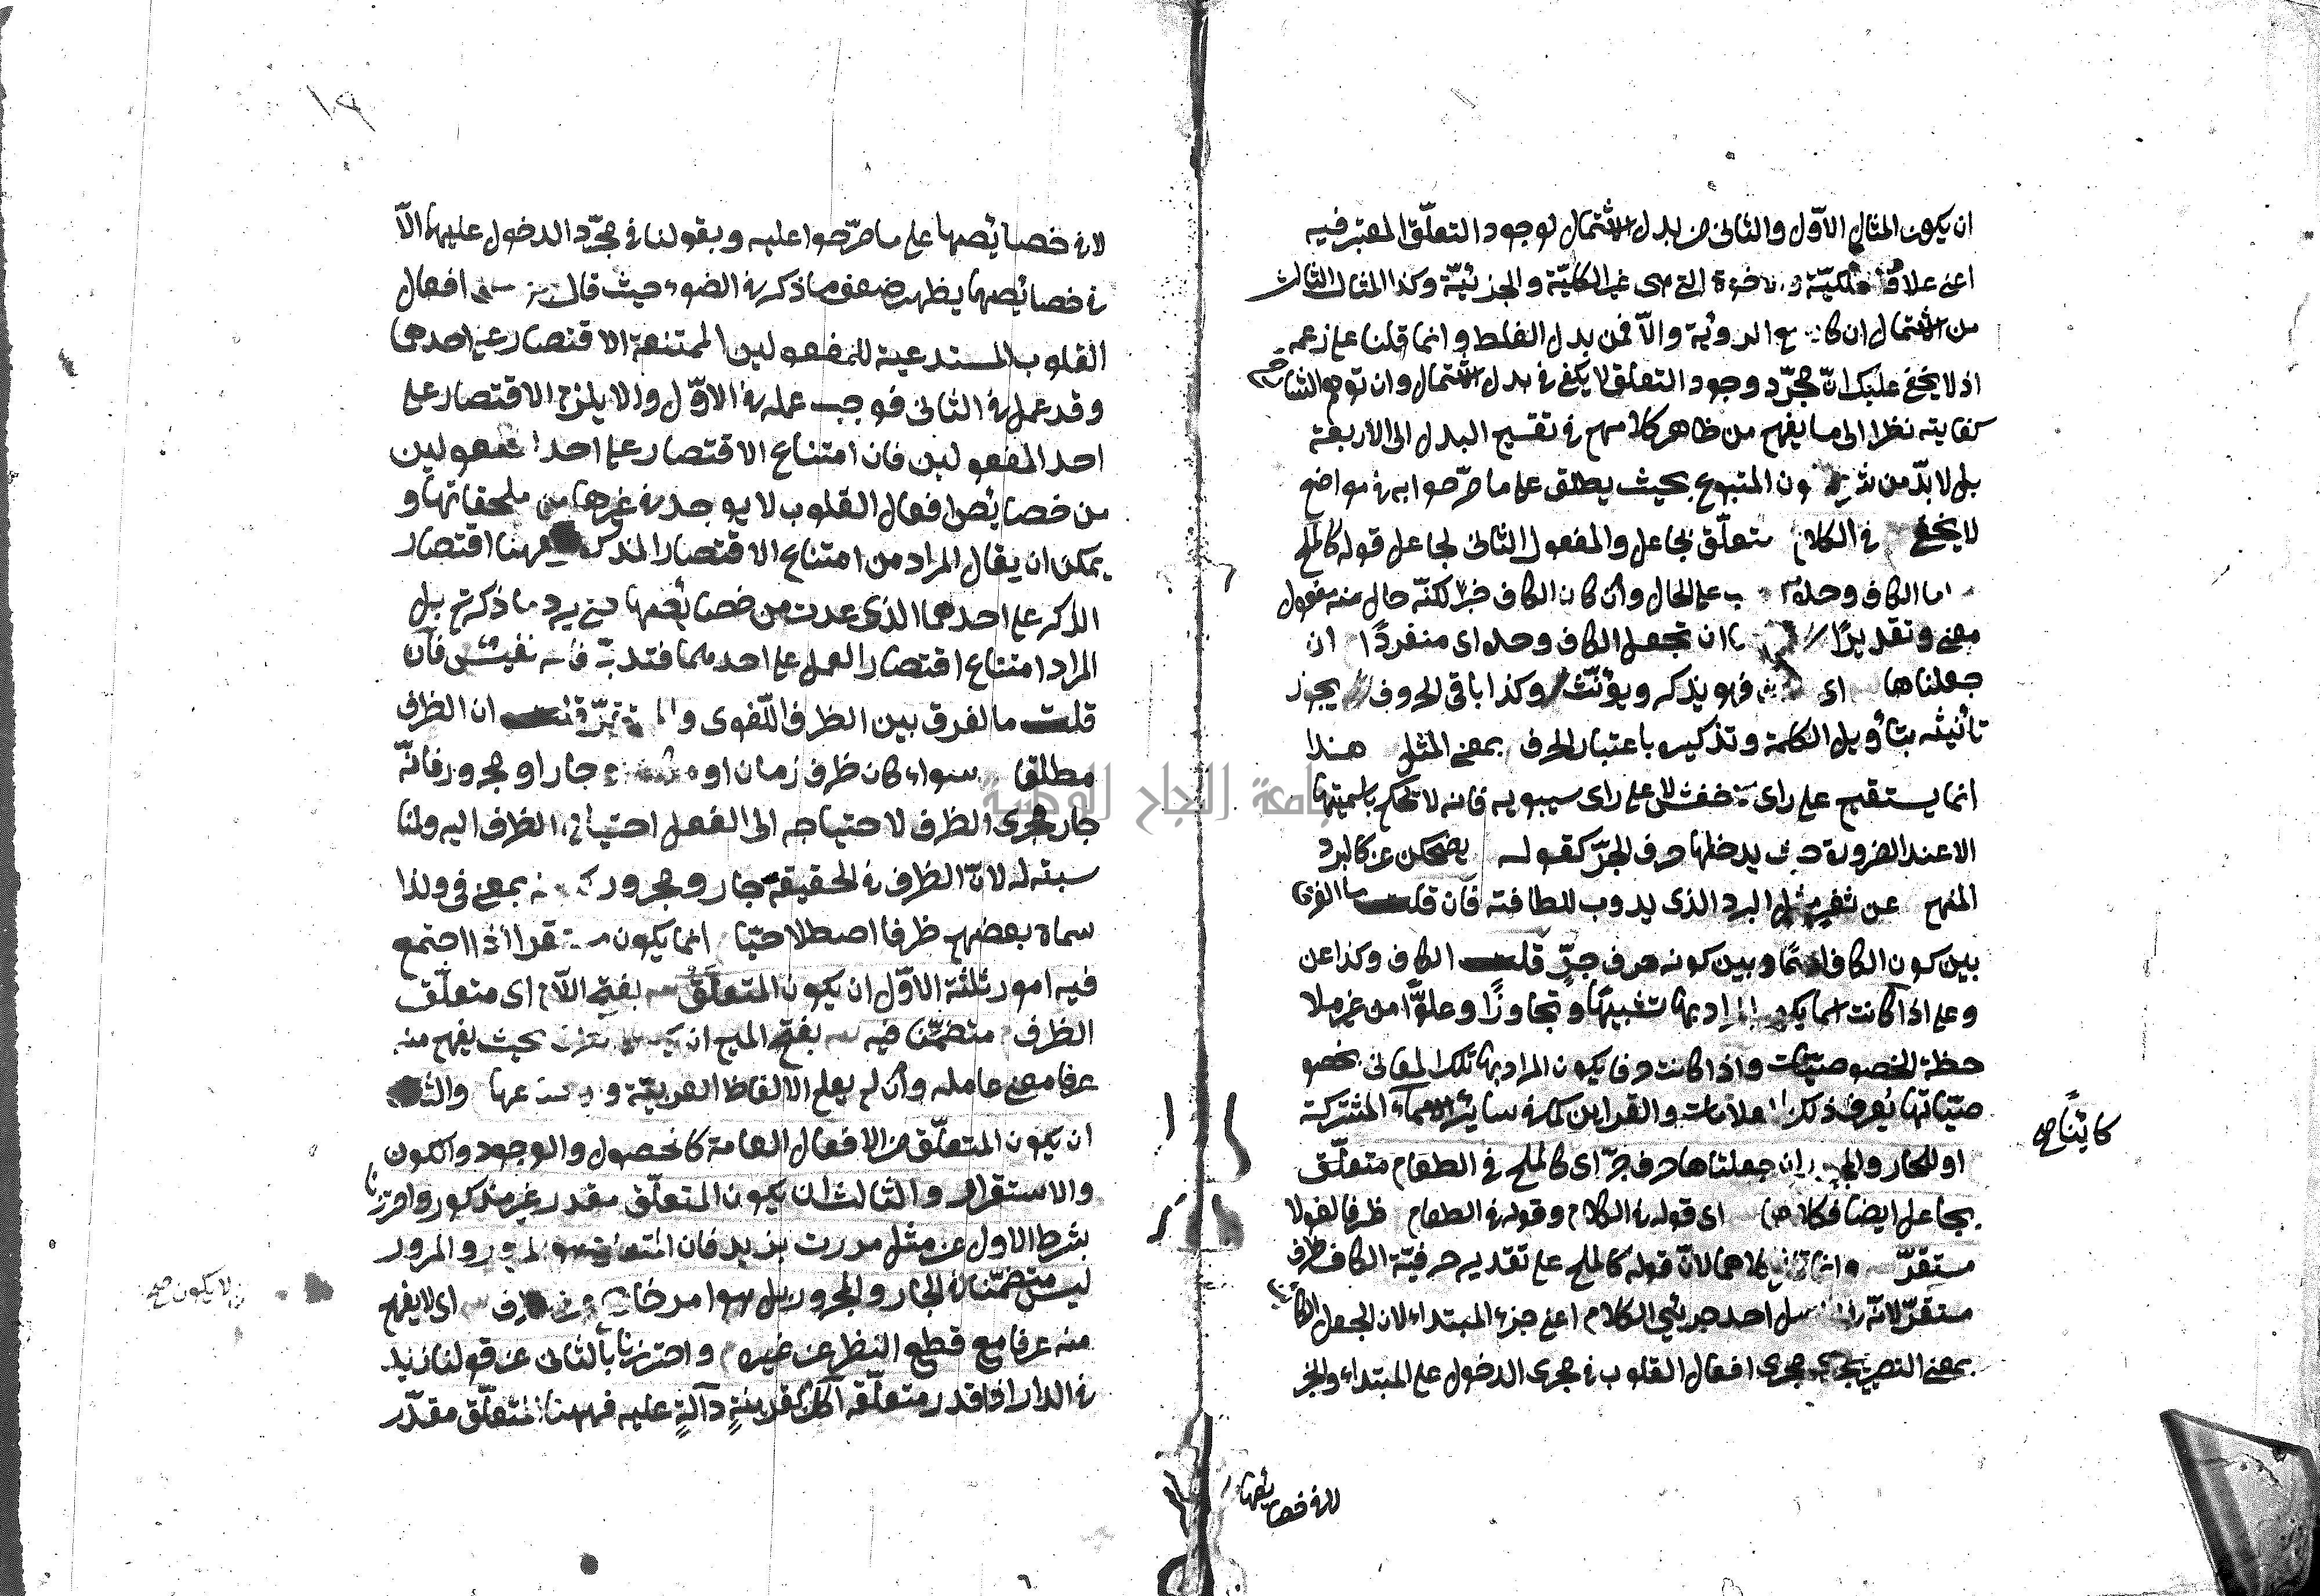 ان يكون المثال الاوّل والثانى من بدل الاشتمال لوجود التعلّق المعتبر فيه
اعنى علاقة التى هى غير الكليّة والجزئيّة وكذا المثال الثالث
من الاشتمال ان والّا فمن بدل الغلط وانما قلنا على زعمه
اذ لا يخفى عليك انّ مجرّد وجود التعلق لا يكفى فى بدل الاشتمال وان توهم الشارح
كفايته نظرا الى ما يفهم من ظاهر كلامهم فى تقسيم البدل الى الاربعة
بل لا بدّ من المتبوع بحيث يطلق على ما صرّحوا به فى مواضع
لا يخفى فى الكلام متعلّق بجاعل والمفعول الثانى لجاعل قوله كالملح
اما الكاف وحده على الحال وان كان الكاف خبرا لكنّه حال منه مفعول
معنى وتقديرًا ان تجعل الكاف وحده اى منفردًا ان
جعلناها اى فهو يذكر ويؤنّث وكذا باقى الحروف يجوز
تأنيثه بتأويل الكلمة وتذكيره باعتبار الحرف بمعنى المثل هذا
انما يستقيم على راى لا على راى سيبويه فانه لا يحكم باسميتها
الا عند الضرورة يدخلها حرف الجرّ كقوله يضحكن عن كالبرد
المنهم عن ثغر مثل البرد الذى يذوب للطافته فان قلت ما الفرق
بين كون الكاف اسمًا وبين كونه حرف جرّ قلت الكاف وكذا عن
وعلى اذا كانت اسما يكون المراد بها تشبيهًا وتجاوزًا وعلوًّا من غير ملا
حظة الخصوصيّات واذا كانت حرفا يكون المراد بها تلك المعانى بخصو
صيّاتها يعرف ذلك بالعلامات والقراين كما فى سائر الاسماء المشتركة
كائنًا صح
او للجار والمجرور ان جعلناها حرف جرّ اى كالملح فى الطعام متعلّق
بجاعل ايضا فكلاهما اى قوله فى الكلام وقوله فى الطعام ظرفا لغو لا
مستقرّ كلاهما لانّ قوله كالملح على تقدير حرفيّة الكاف ظرف
مستقرّ لانّه احد جزئي الكلام اعنى جزء المبتداء لان الجعل الكائن
بمعنى التصيير يجرى مجرى افعال القلوب فى مجرى الدخول على المبتداء والخبر
لا فى خصائصها
لا فى خصائصها على ما صرّحوا عليه وبقولنا فى مجرّد الدخول عليهما لا
فى خصائصها يظهر ضعف ما ذكر فى الضوء حيث قال افعال
القلوب المستدعية للمفعولين الممتنعة الاقتصار على احدهما
وقد عمل فى الثانى فوجب عمله فى الاوّل والا يلزم الاقتصار على
احد المفعولين فان امتناع الاقتصار على احد المفعولين
من خصائص افعال القلوب لا يوجد فى غيرها من ملحقاتها و
يمكن ان يقال المراد من امتناع الاقتصار المذكور ههنا اقتصار
الذكر على احدهما الذى عدت من خصائصها حتى يرد ما ذكرتم بل
المراد امتناع اقتصار العمل على احدهما فتدبّر فانه نفيس فان
قلت ما الفرق بين الظرف اللّغوى والمستقرّ قلت ان الظرف
مطلقا سواء كان ظرف زمان او جار او مجرور فانّه
جار مجرى الظرف لاحتياجه الى الفعل احتياج الظرف اليه ولمنا
سبته له لانّ الظرف فى الحقيقة جار ومجرور بمعنى فى ولذا
سماه بعضهم ظرفا اصطلاحيّا انما يكون مستقرا اذا اجتمع
فيه امور ثلثة الاوّل ان يكون المتعلَّق بفتح اللّام اى متعلّق
الظرف متضمّنا فيه بفتح الميم ان بحيث يفهم منه
عرفا معنى عامله وان لم يعلم الالفاظ العربيّة والثانى
ان يكون المتعلّق من الافعال العامة كالحصول والوجود والكون
والاستقرار والثالث ان يكون المتعلّق مقدر غير مذكور واحترزنا
بشرط الاول عن مثل مررت بزيد فان المتعلق المرور والمرور
لا يكون صح
ليس متضمّنا فى الجار والمجرور بل هو امر خارج اى لا يفهم
منه عرفا مع قطع النظر عن غيره واحترزنا بالثانى عن قولنا زيد
فى الدار اذا قدر متعلّقه آكل لقرينةٍ دآلّةٍ عليه فههنا المتعلّق مقدّر